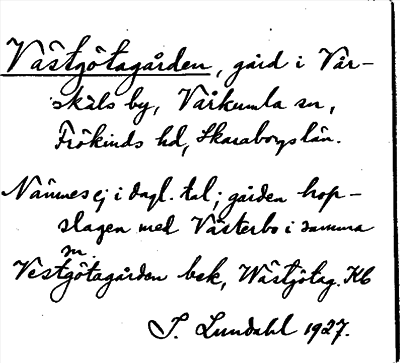 Västgötagården, gård i Vår-
skåls by, Vårkumla sn,
Frökinds hd, Skaraborgs län.
Nämnes ej i dagl. tal; gården hop-
slagen med Västerbo i samma
sn.
Vestgötagården bsk, Wästgötag. Kb
S. Lundahl 1927.